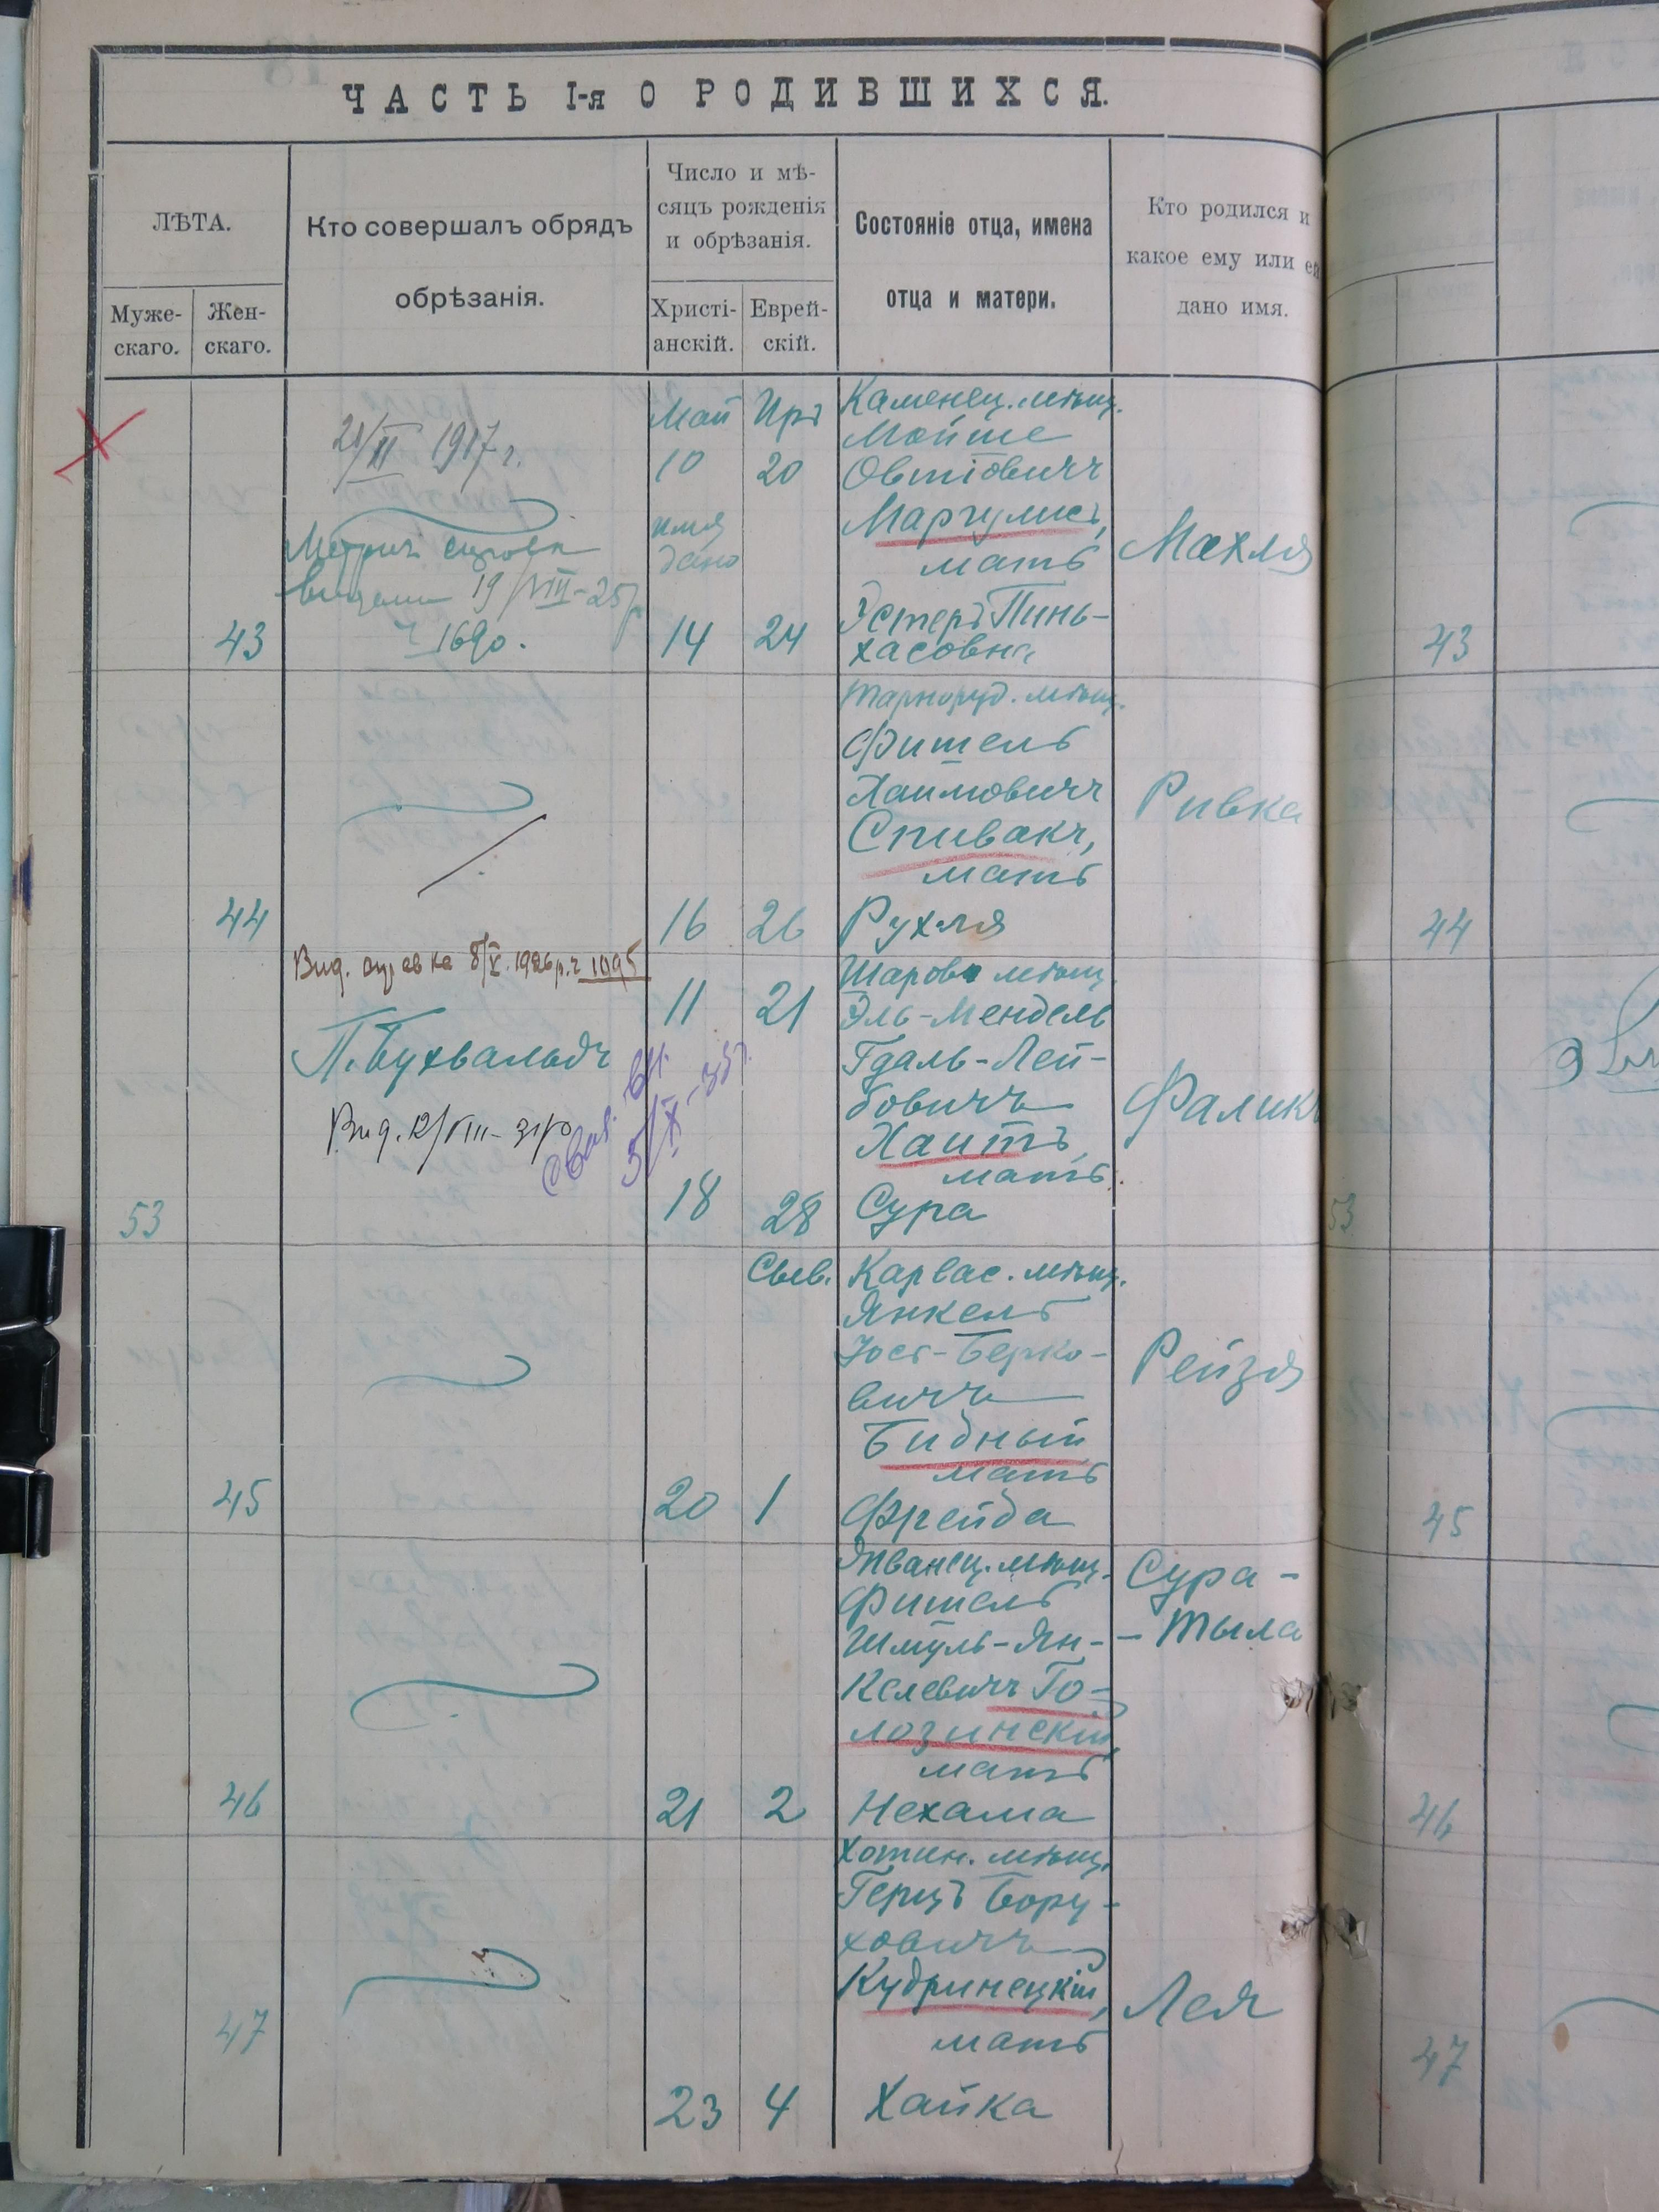 ЧАСТЬ I-я О РОДИВШИХСЯ.
ЛѢТА.
Муже-
скаго.
Жен-
скаго.
Кто совершалъ обрядъ
обрѣзанія.
Число и мѣ-
сяцъ рожденія
и обрѣзанія.
Христі-
анскій.
Еврей-
скій.
Состояніе отца, имена
отца и матери.
Кто родился и
какое ему или ей
дано имя.
43
20/XI 1917 г.
19/VIII-25р
1690.
Май
10
имя
дано
14
Иръ
20
24
Каменец. мѣщ.
Мойше
Маргулисъ,
мать
Эстеръ Пинь-
хасовна
Махля
43
44
16
26
Тарноруд. мѣщ.
Фишель
Хаимовичъ
Спивакъ,
мать
Рухля
Ривка
44
53
Вид. 8/X. 1926р. ч 1095
П. Бухвальдъ
Вид. 12/VIII-31р
5/X-35г.
11
18
21
28
Шаров. мѣщ.
Эль-Мендель
Гдаль-Лей-
бовичъ
Хаитъ,
мать
Сура
Фаликъ
53
45
20
Сыв.
1
Карвас. мѣщ.
Янкель
Іось-Берко-
вичъ
Бидный
мать
Фрейда
Рейзя
45
46
21
2
Жванец. мѣщ.
Фишель
Шмуль-Ян-
келевичъ Го-
лозинскій,
мать
Нехама
Сура-
-Тыла
46
47
23
4
Хотин. мѣщ.
Герцъ Бору-
ховичъ
Кудринецкій,
мать
Хайка
Лея
47